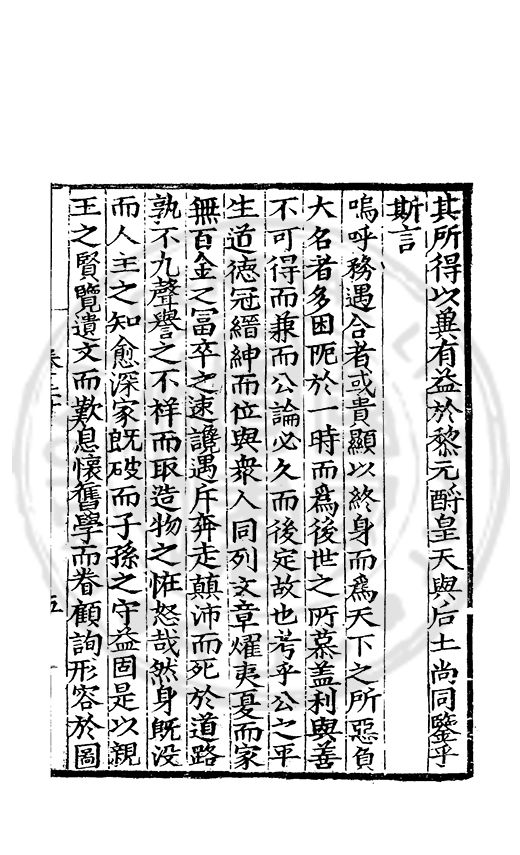 其所得以冀有益於黎元酹皇天與后土尚同鑒乎
斯言
嗚呼務遇合者或貴顯以終身而為天下之所惡負
大名者多困阨於一時而為後世之所慕盖利與善
不可得而兼而公論必久而後定故也考乎公之平
生道德冠縉紳而位與衆人同列文章燿夷夏而家
無百金之冨卒之速讒遇斥奔走顛沛而死於道路
孰不九聲譽之不祥而取造物之恠怒哉然身旣没
而人主之知愈深家旣破而子孫之守益固是以親
王之賢覽遺文而歎息懷舊學而眷顧詢形容於圖